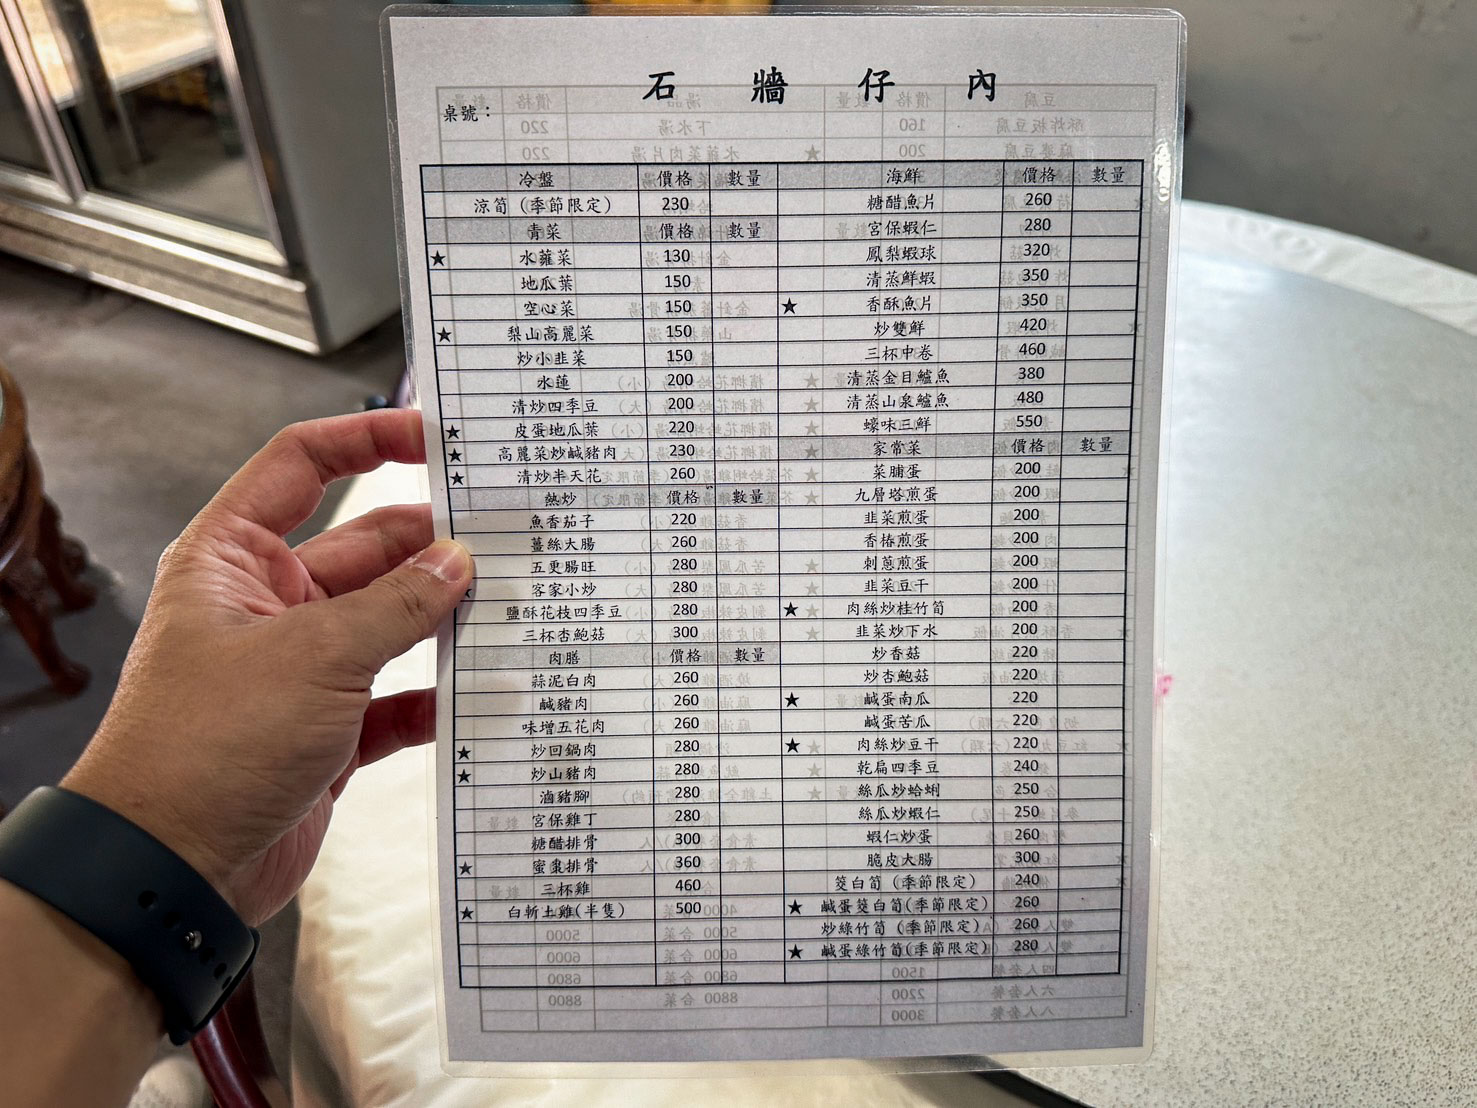 石牆仔內
桌號：
冷盤 價格 數量
涼筍（季節限定） 230
青菜 價格 數量
★ 水蕹菜 130
地瓜葉 150
空心菜 150
★ 梨山高麗菜 150
炒小韭菜 150
水蓮 200
清炒四季豆 200
★ 皮蛋地瓜葉 220
★ 高麗菜炒鹹豬肉 230
★ 清炒半天花 260
熱炒 價格 數量
魚香茄子 220
薑絲大腸 260
五更腸旺 280
★ 客家小炒 280
鹽酥花枝四季豆 280
三杯杏鮑菇 300
肉膳 價格 數量
蒜泥白肉 260
鹹豬肉 260
味增五花肉 260
★ 炒回鍋肉 280
★ 炒山豬肉 280
滷豬腳 280
宮保雞丁 280
糖醋排骨 300
★ 蜜棗排骨 360
三杯雞 460
★ 白斬土雞(半隻) 500
海鮮 價格 數量
糖醋魚片 260
宮保蝦仁 280
鳳梨蝦球 320
清蒸鮮蝦 350
★ 香酥魚片 350
炒雙鮮 420
三杯中卷 460
清蒸金目鱸魚 380
清蒸山泉鱸魚 480
蠔味三鮮 550
家常菜 價格 數量
菜脯蛋 200
九層塔煎蛋 200
韭菜煎蛋 200
香椿煎蛋 200
刺蔥煎蛋 200
韭菜豆干 200
★ 肉絲炒桂竹筍 200
韭菜炒下水 200
炒香菇 220
炒杏鮑菇 220
★ 鹹蛋南瓜 220
鹹蛋苦瓜 220
★ 肉絲炒豆干 220
乾扁四季豆 240
絲瓜炒蛤蜊 250
絲瓜炒蝦仁 250
蝦仁炒蛋 260
脆皮大腸 300
筊白筍（季節限定） 240
★ 鹹蛋筊白筍(季節限定) 260
炒綠竹筍（季節限定） 260
★ 鹹蛋綠竹筍(季節限定) 280